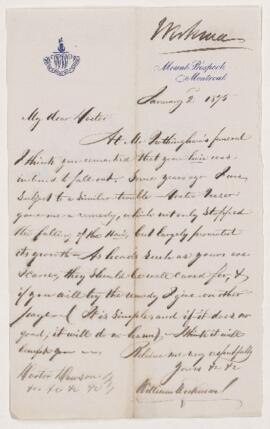 Workman
Mount Prospect,
Montreal
January 2 1875
My dear Doctor
At Mr funeral
I think you remarked that your hair was
inclined to fall out. Some years ago I was
subject to a similar trouble - Doctor
gave me a remedy, which not only stopped
the falling of the Hair, but largely promoted
its growth - As heads such as yours are
scarce, they should be well cared for, &
if you will try the remedy I give on other
paper (It is simple, and if it does no
good, it will do no harm), I think it will
you
Believe me very respectfully
Yours &c &c
William Workman
Doctor Dawson
&c &c &c &c